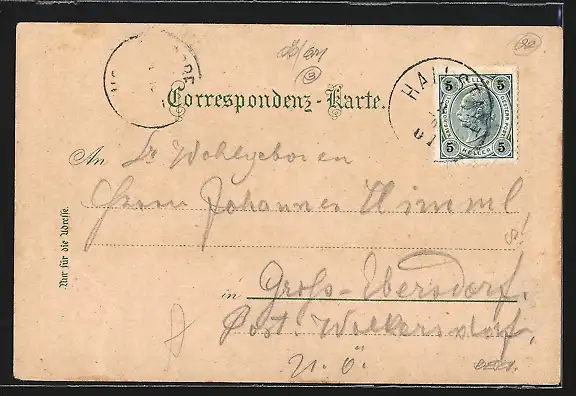 Correspondenz-Karte.
5 5
HELLER
5 5
An Sr Wohlgeboren
Herrn Johannes Himml
Nur für die Adresse.
in Groß-Ebersdorf,
Post: Wolkersdorf,
N. Ö.